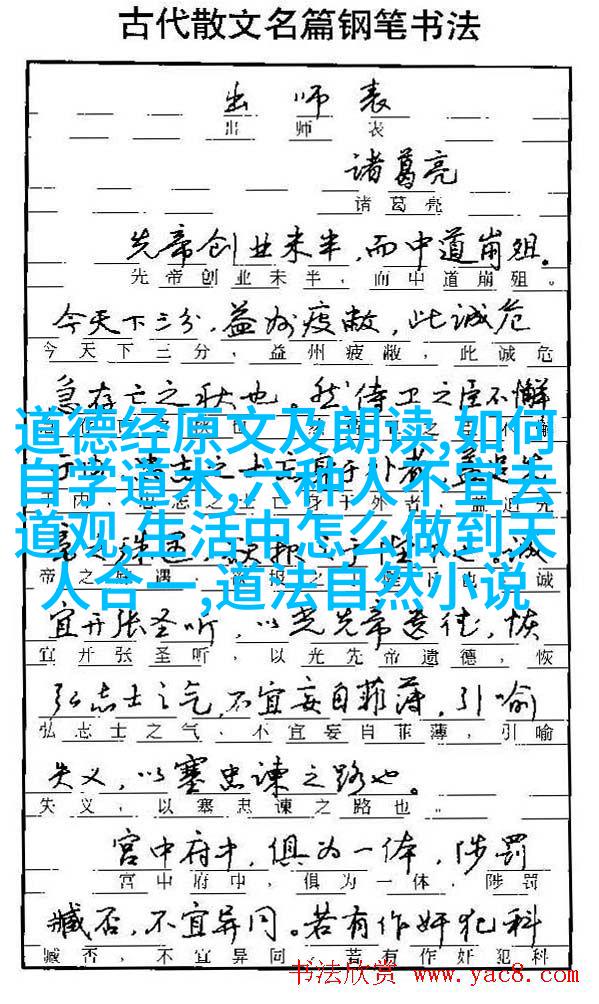 古代散文名篇钢笔书法
出师表
出师表
诸葛亮
诸葛亮
先帝创业未半,而中道崩殂。
先帝创业未半,而中道崩殂。
今天下三分,益州疲敝,此诚危
今天下三分,益州疲敝,此诚危
急存亡之秋也。然侍卫之臣不懈
道德经原文及朗读,如何
自学道术,六种人不宜去
道观,生活中怎么做到天
人合一,道法自然小说
宜开张圣听,以光先帝遗德,恢
宜开张圣听,以光先帝遗德,恢
弘志士之气,不宜妄自菲薄,引喻
弘志士之气,不宜妄自菲薄,引喻
失义,以塞忠谏之路也。
失义,以塞忠谏之路也。
宫中府中,俱为一体,陟罚
宫中府中,俱为一体,陟罚
臧否,不宜异同。若有作奸犯科
臧否,不宜异同。若有作奸犯科
书法欣赏 www.yac8.com